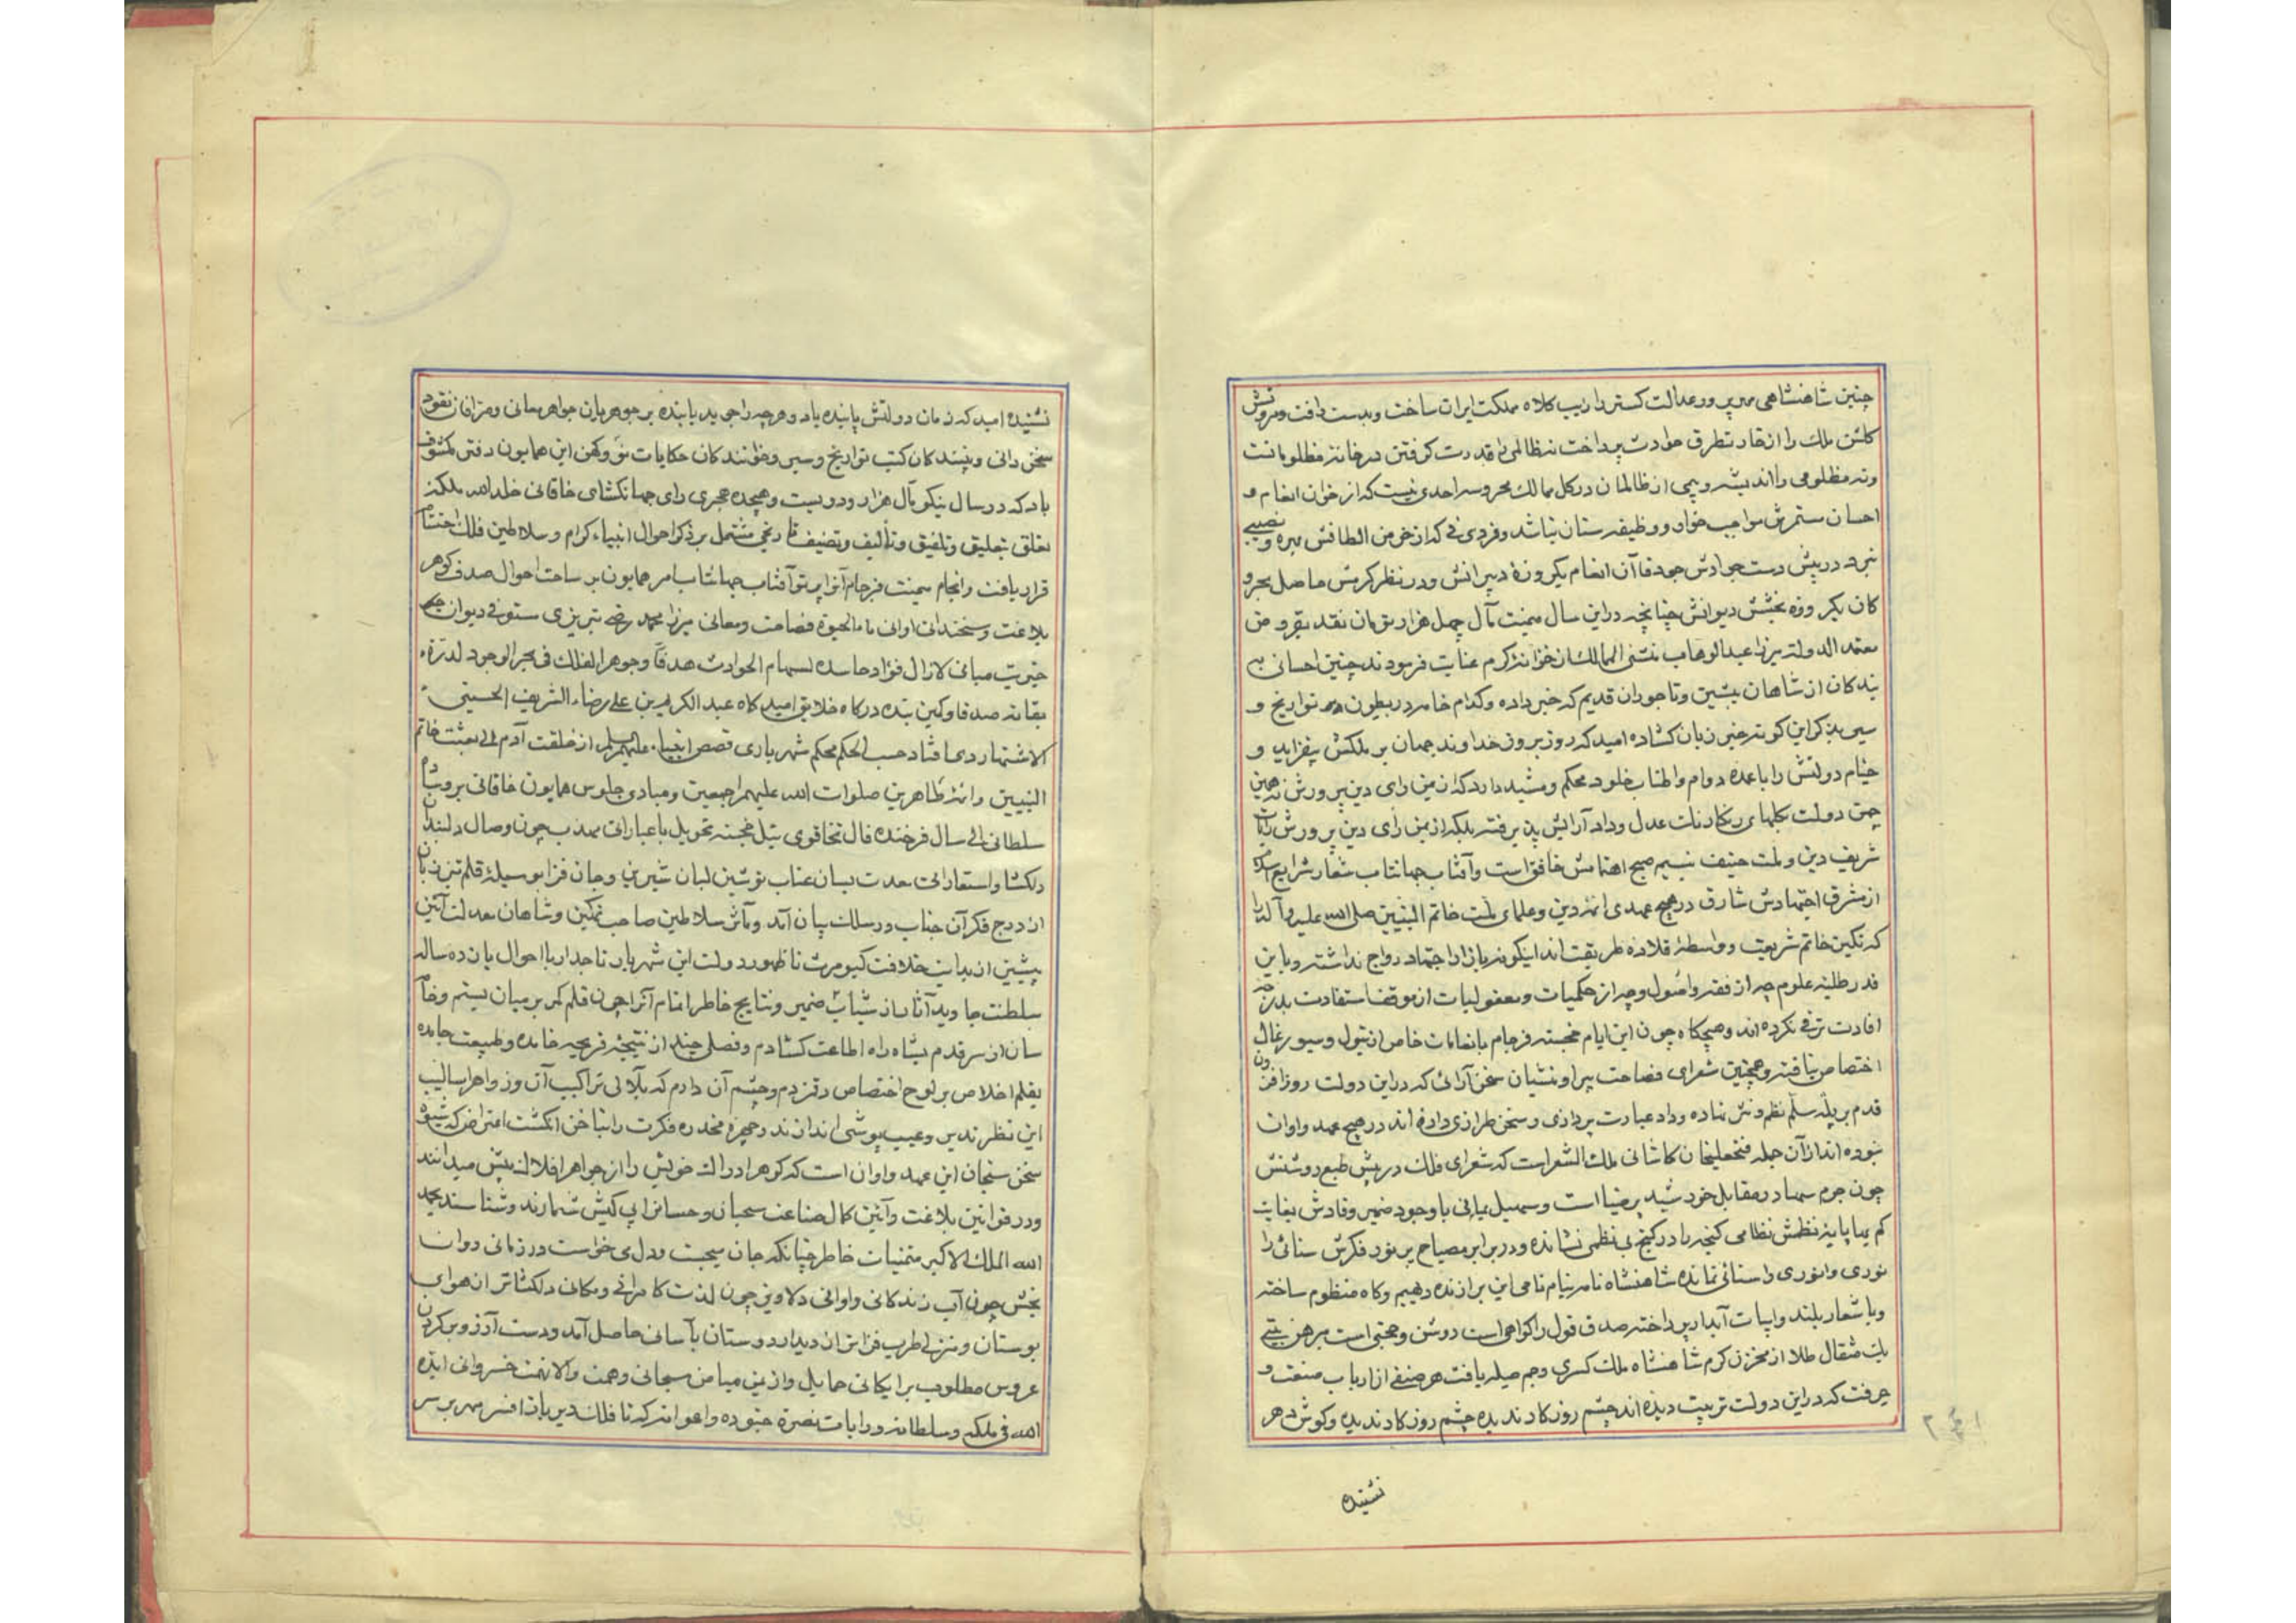 چنین شاهنشاهی مهرپرور عدالت گستر را زیب کلاه مملکت ایران ساخت و بدست رافت و مروتش
گلشن ملک را از خار تطرق حوادث پرداخت نه ظالمی را قدرت گرفتن در خانه مظلومانست
و نه مظلومی را اندیشه و بیمی از ظالمان در کل ممالک محروسه احدی نیست که از خوان انعام و
احسان مستمرش مواجب خوار و وظیفه ستان نباشد و فردی نی که از خرمن الطافش بهره و نصیبی
نبرد در پیش دست جوادش جود قاآن انعام یکروزهٔ دبیرانش و در نظر کرمش حاصل بحر و
کان یکروزه بخشش دیوانش چنانچه در این سال میمنت مآل چهل هزار تومان نقد بقرض
معتمد الدوله میرزا عبدالوهاب منشی الممالک از خزانهٔ کرم عنایت فرمودند چنین احسانی به
بندگان از شاهان پیشین و تاجوران قدیم که خبر داده و کدام خامه در بطون تواریخ و
سیر بذکر این گونه خبر زبان گشاده امید که روز بروز خداوند جهان بر ملکش بیفزاید و
خیام دولتش را با عمدهٔ دوام و اطناب خلود محکم و مشید دارد که از یمن رای دین پرورش نه همین
چمن دولت بگلهای رنگارنگ عدل و داد آرایش پذیرفته بلکه از یمن رای دین پرورش رایات
شریف دین و ملت حنیف بنسیم صبح اهتمامش خافق است و آفتاب جهانتاب شعار شرایع اسلام
از مشرق اجتهادش شارق در هیچ عهدی ائمه دین و علمای ملت خاتم النبیین صلی الله علیه و آله را
که نگین خاتم شریعت و واسطهٔ قلاده طریقت اند اینگونه بازار اجتهاد رواج نداشته و باین
قدر طلبهٔ علوم چه از فقه و اصول و چه از حکمیات و معقولیات از موقف استفادت بدرجه
افادت ترقی نکرده اند و هیچگاه چون این ایام خجسته فرجام بانعامات خاص از تیول و سیورغال
اختصاص نیافته و همچنین شعرای فصاحت پیرا و منشیان سخن آرائی که در این دولت روزافزون
قدم بر پلهٔ سلم نظم و نثر نهاده و داد عبارت پردازی و سخن طرازی داده اند در هیچ عهد و اوان
نبوده اند از آن جمله فتحعلیخان کاشانی ملک الشعراست که شعرای فلک در پیش طبع روشنش
چون جرم سها در مقابل خورشید پر ضیا است و سهیل یمانی با وجود ضمیر وقادش بغایت
کم بها پایهٔ نظمش نظامی گنجه را در کنج بی نظمی نشانده و در برابر مصباح پر نور فکرش سنائی را
نوری و انوری را سنائی نمانده شاهنشاه نامه بنام نامی این برازنده دیهیم و گاه منظوم ساخته
و باشعار بلند و ابیات آبدار پرداخته صدق قول را گواهی است روشن و حجتی است مبرهن بیتی
یک مثقال طلا از مخزن کرم شاهنشاه ملک کسری و جم صله یافت هر صنفی از ارباب صنعت و
حرفت که در این دولت تربیت دیده اند چشم روزگار ندیده چشم روزگار ندیده و گوش دهر
نشنیده
نشنیده امید که زمان دولتش پاینده باد و هر چه را جوید یابنده بر جوهریان جواهر معانی و صرافان نقود
سخن دانی و بینندگان کتب تواریخ و سیر و خوانندگان حکایات نو و کهن این همایون دفتر مکشوف
باد که در سال نیکو مآل هزار و دویست و هیجده هجری رای جهانگشای خاقانی خلد الله ملکه
تعلق بتعلیق و تلفیق و تألیف و تصنیف تاریخی مشتمل بر ذکر احوال انبیاء کرام و سلاطین فلک احتشام
قرار یافت و انجام میمنت فرجام آنرا پرتو آفتاب جهانتاب امر همایون بر ساحت احوال صدف گوهر
بلاغت و سخندانی اوانی ماء الحیوة فصاحت و معانی میرزا محمد رضی تبریزی مستوفی دیوان
خیریت مبانی لازال فؤاد حاسده لسهام الحوادث هدفا و جوهر الفلک فی بحر الوجود لدرة
بقائه صدفا و کمین بنده درگاه خلایق امید گاه عبد الکریم بن علی رضاء الشریف الحسینی
الاشتهاردی افتاد حسب الحکم محکم شهریاری قصص انبیاء علیهم السلم از خلقت آدم الی بعثت خاتم
النبیین و ائمهٔ طاهرین صلوات الله علیهم اجمعین و مبادی جلوس همایون خاقانی بر وساده
سلطانی الی سال فرخنده فال تخاقوی ئیل خجسته تحویل باعباراتی مهذب چون وصال دلبندان
دلگشا و استعاراتی بعدت بسان عتاب نوشین لبان شیرین و جان فزا بوسیلهٔ قلم تیز زبان
از درج فکر آن جناب در سلک بیان آمد و مآثر سلاطین صاحب تمکین و شاهان معدلت آئین
پیشین از بدایت خلافت کیومرث تا ظهور دولت این شهریار تاجدار با احوال یازده ساله
سلطنت جاوید آثار از شیاب ضمیر و نتایج خاطر اتمام آنرا چون قلم کمر بر میان بستم و خامه
سان از سر قدم بشاه راه اطاعت گشادم و فصلی چند از نتیجهٔ قریحه خامده و طبیعت جامده
بقلم اخلاص بر لوح اختصاص رقم زدم و چشم آن دارم که بلآلی تراکیب آن و زواهر اسالیب
این نظر تدبر و عیب پوشی اندازند و چهرهٔ مخدره فکرت را بناخن انگشت اعتراض که شیوه
سخن سنجان این عهد و اوان است که گوهر ادراک خویش را از جواهر افلاک بیش میدانند
و در قوانین بلاغت و آئین کمال صناعت سحبان و حسان را بی کیش شمارند و شناسند بحمد
الله الملک الاکبر متمنیات خاطر چنانکه جان میجست و دل می خواست در زمانی روان
بخش چون آب زندگانی و اوانی دلاویز چون لذت کامرانی و مکانی دلگشاتر از هوای
بوستان و منزلی طرب فزاتر از دیدار دوستان بآسانی حاصل آمد و دست آرزو بر گردن
عروس مطلوب برایگانی حمایل و از یمن میامن سبحانی و همت والانهمت خسروانی ایده
الله فی ملکه و سلطانه و رایات نصرة جنوده و اعوانه که تا فلک دیرباز افسر مهر بر سر